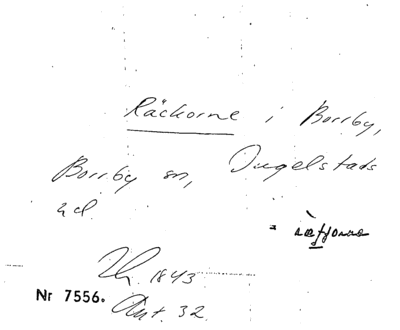 Räckorne i Borrby,
Borrby sn, Ingelstads
hd.
=
Th. 1843
Nr 7556. Ant. 32